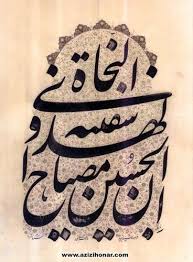 ان الحسین مصباح
الهدی و
سفینه
النجاة
www.azizihonar.com